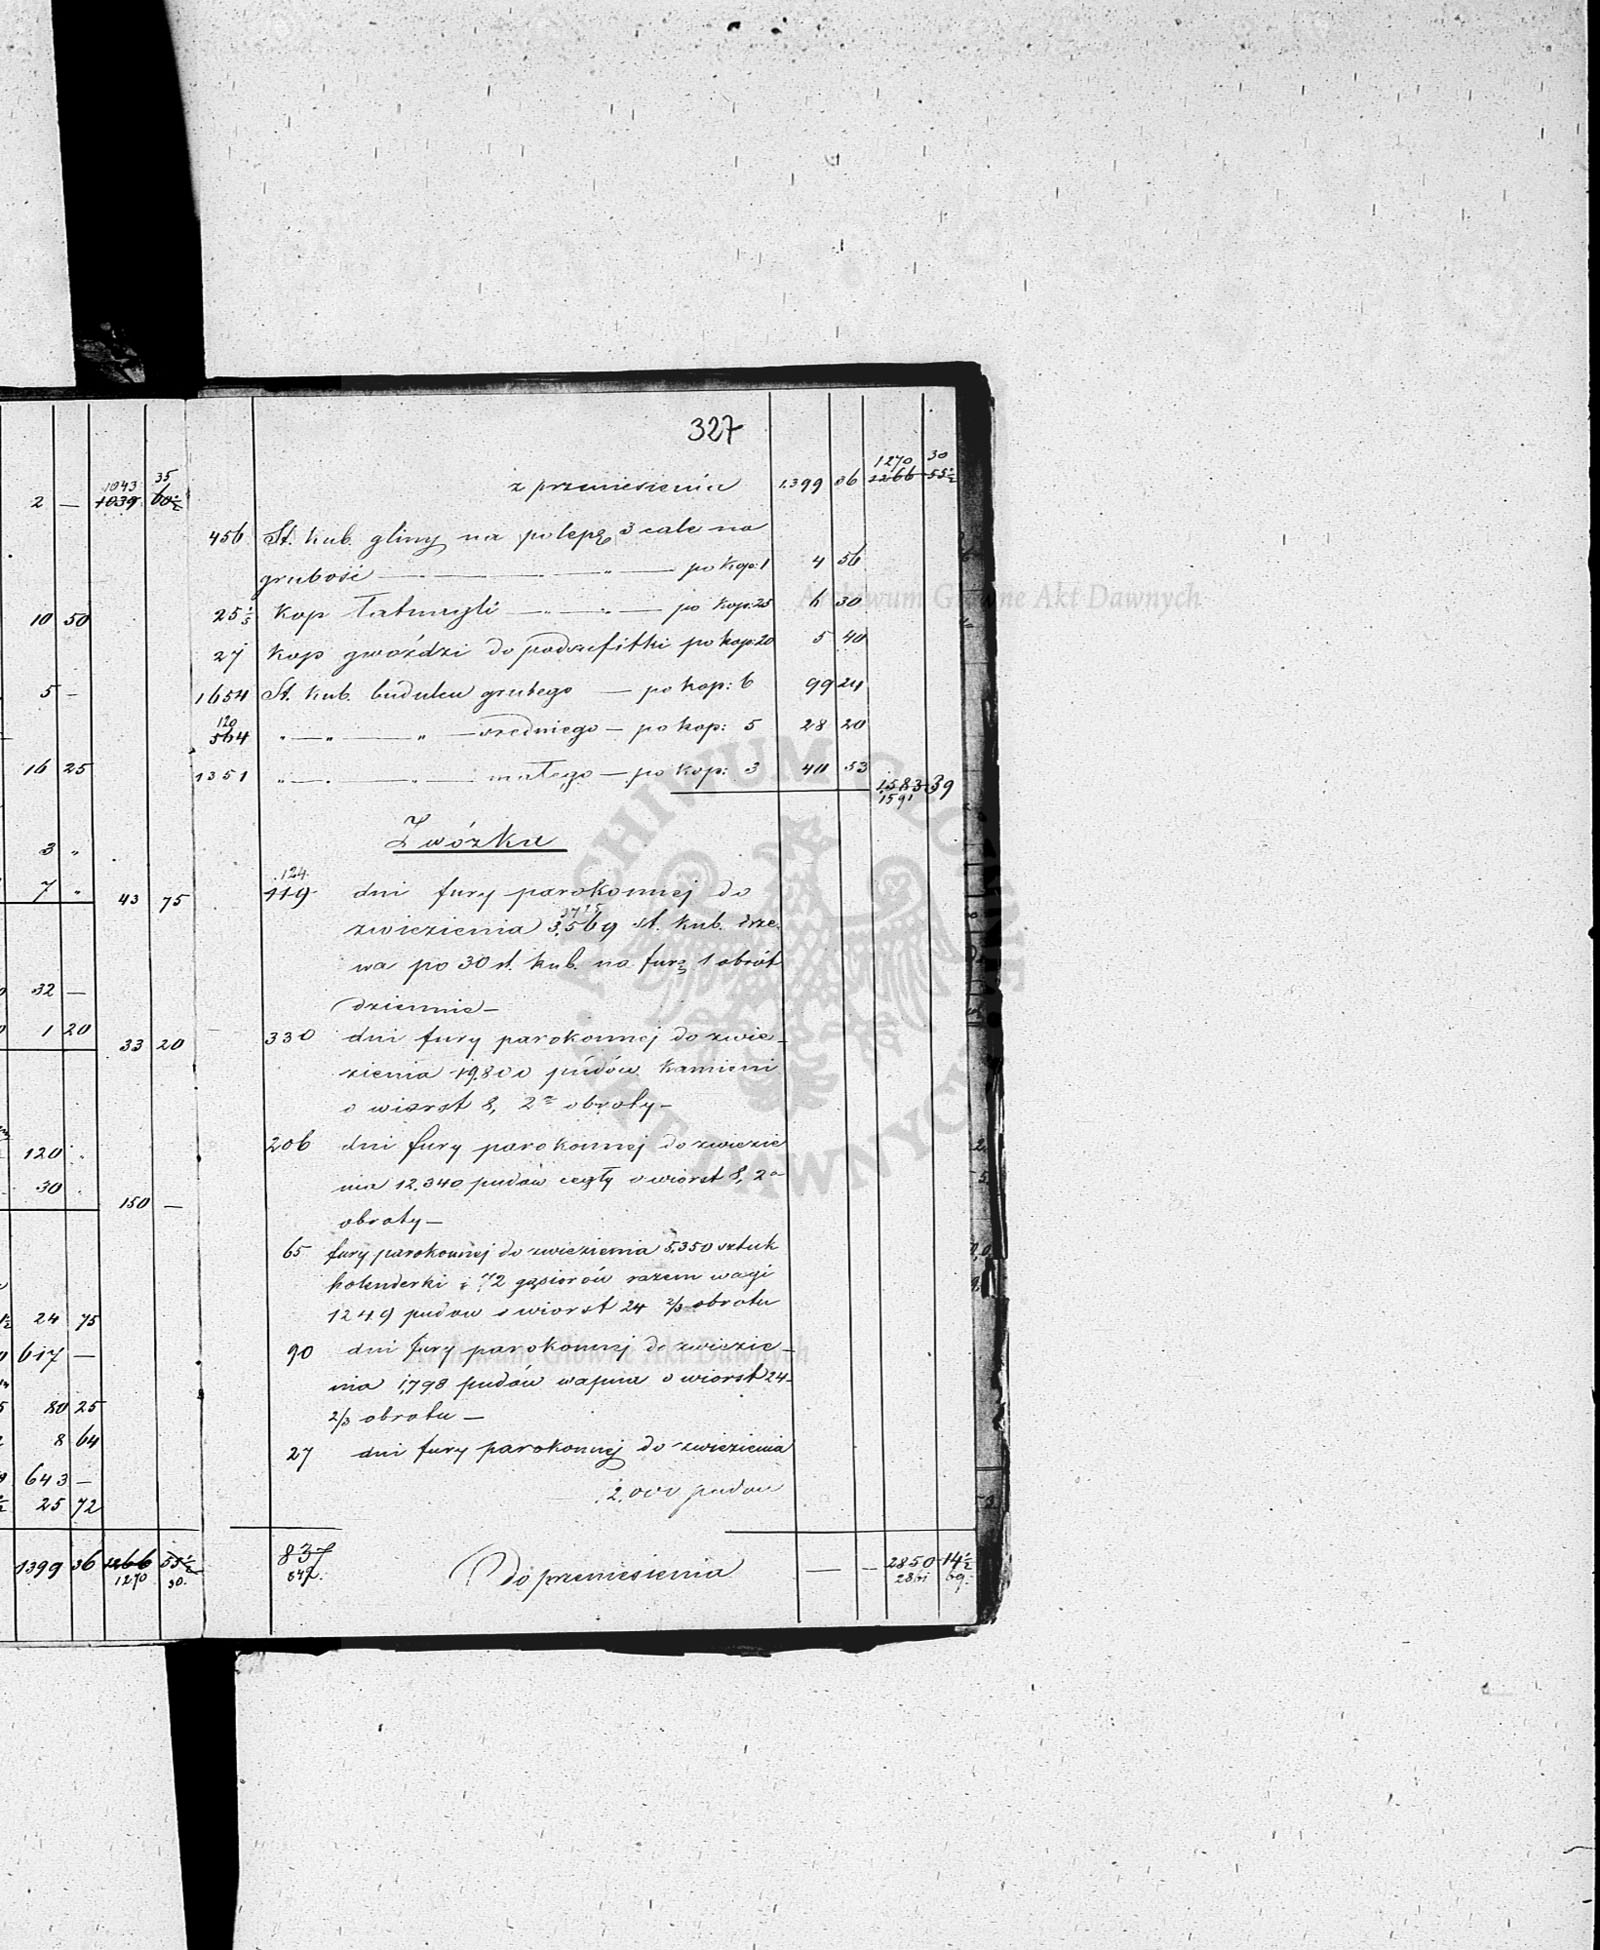 2 — 1043 35
1039 60½
10 50
5 —
16 25
3 "
7 " 43 75
32 —
1 20 33 20
120
30 150 —
24 75
617 —
80 25
8 64
643 —
25 72
1399 36 1266 55½
1270 30.
327
1270 30
z przeniesienia 1.399 36 1266 55½
456 St. kub. gliny na polepę 3 cale na
grubość — " — " — po kop: 1 4 56
25 1/5 kop Łatwugli — " — po kop: 25 6 30
27 kop gwoździ do podsufitki po kop 20 5 40
1654 St. kub. budulcu grubego — po kop: 6 99 24
120
564 " — " — " — średniego — po kop: 5 28 20
1351 " — " — " — małego — po kop: 3 40 53
1.583 39
1591
Zwózka
124.
119 dni fury parokonnej do
3715
zwiezienia 3.569 st. kub. drze-
wa po 30 st. kub. na furę 1 obrót
dziennie —
330 dni fury parokonnej do zwie-
zienia 19.800 pudów kamieni
o wiorst 8, 2a obroty —
206 dni fury parokonnej do zwiezie
nia 12.340 pudów cegły o wiorst 8, 2a
obroty —
65 fury parokonnej do zwiezienia 5.350 sztuk
holenderki i 72 gąsiorów razem wagi
1249 pudów o wiorst 24 2/3 obrotu
90 dni fury parokonnej do zwiezie-
nia 1,798 pudów wapna o wiorst 24-
2/3 obrotu —
27 dni fury parokonnej do zwiezienia
2.000 pudów
837
842.
Do przeniesienia — — 2850 14½
2861 69.
Archiwum Główne Akt Dawnych
ARCHIWUM GŁÓWNE AKT DAWNYCH
Archiwum Główne Akt Dawnych